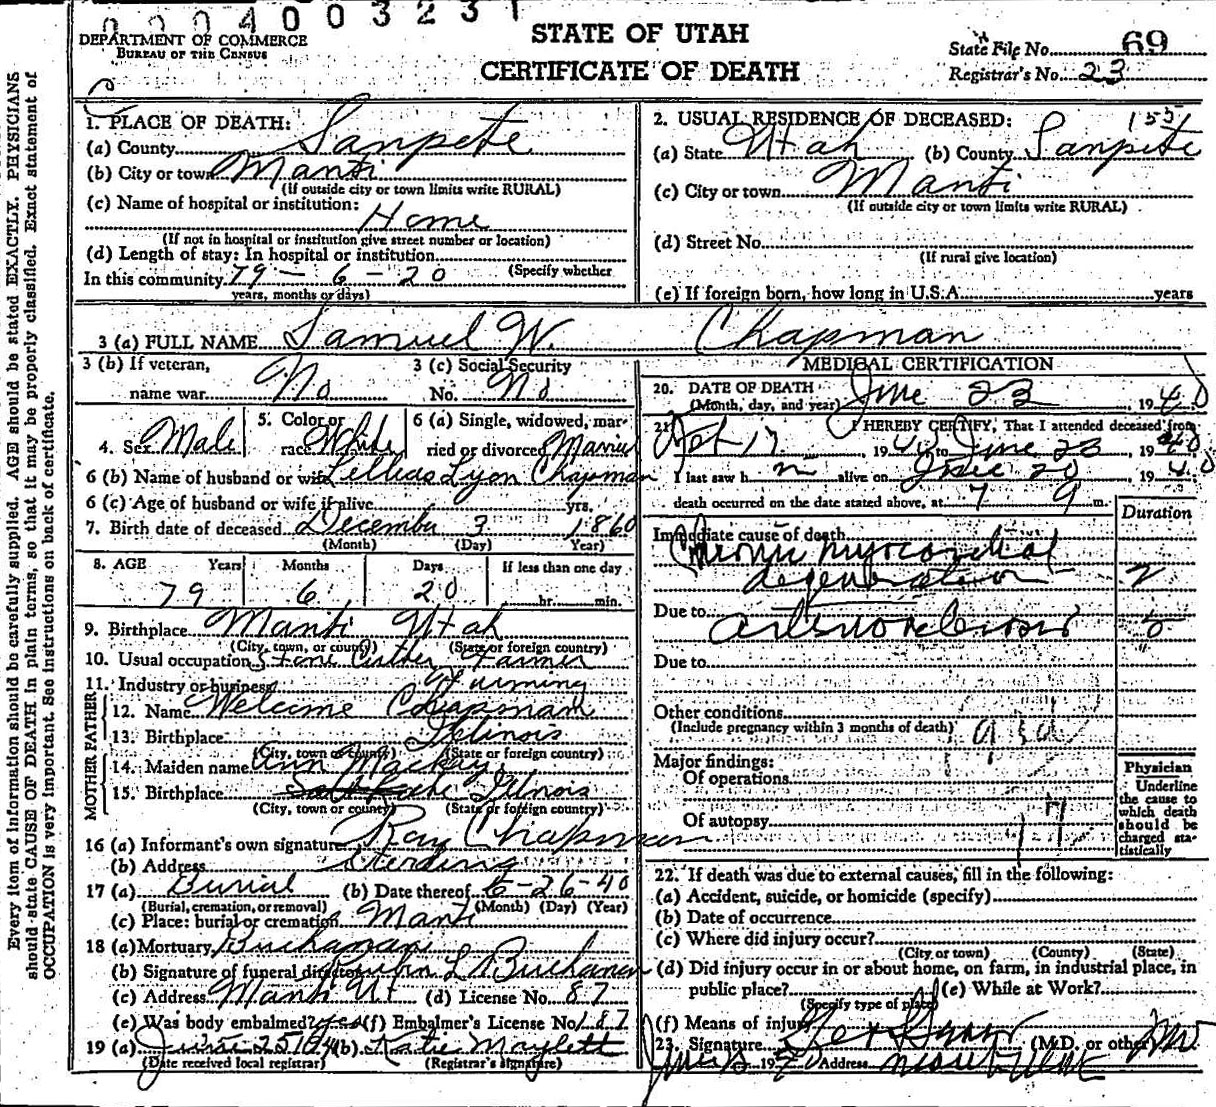 000400323 1
DEPARTMENT OF COMMERCE
BUREAU OF THE CENSUS
STATE OF UTAH
CERTIFICATE OF DEATH
State File No. 69
Registrar's No. 23
Every item of information should be carefully supplied. AGE should be stated EXACTLY. PHYSICIANS
should state CAUSE OF DEATH in plain terms, so that it may be properly classified. Exact statement of
OCCUPATION is very important. See instructions on back of certificate.
1. PLACE OF DEATH:
(a) County Sanpete
(b) City or town Manti
(If outside city or town limits write RURAL)
(c) Name of hospital or institution:
Home
(If not in hospital or institution give street number or location)
(d) Length of stay: In hospital or institution
(Specify whether
In this community 79 - 6 - 20
years, months or days)
2. USUAL RESIDENCE OF DECEASED: 155
(a) State Utah (b) County Sanpete
(c) City or town Manti
(If outside city or town limits write RURAL)
(d) Street No.
(If rural give location)
(e) If foreign born, how long in U.S.A. years
3 (a) FULL NAME Samuel W. Chapman
3 (b) If veteran, name war No
3 (c) Social Security No. No
4. Sex Male
5. Color or race White
6 (a) Single, widowed, married or divorced Married
6 (b) Name of husband or wife Lyon Chapman
6 (c) Age of husband or wife if alive yrs.
7. Birth date of deceased December 3 1860
(Month) (Day) Year)
8. AGE Years Months Days If less than one day
79 6 20 hr. min.
9. Birthplace Manti Utah
(City, town, or county) (State or foreign country)
10. Usual occupation Stone Cutter Farmer
11. Industry or business Farming
FATHER
12. Name Welcome Chapman
13. Birthplace Illinois
(City, town or county) (State or foreign country)
MOTHER
14. Maiden name Ann Mackay
15. Birthplace Illinois
(City, town or county) (State or foreign country)
16 (a) Informant's own signature Ray Chapman
(b) Address Sterling
17 (a) Burial (b) Date thereof 6-26-40
(Burial, cremation, or removal) (Month) (Day) (Year)
(c) Place: burial or cremation Manti
18 (a) Mortuary Buchanan
(b) Signature of funeral director L Buchanan
(c) Address Manti Ut (d) License No. 87
(e) Was body embalmed? yes (f) Embalmer's License No. 187
19 (a) June 25 1940 (b) Katie Maylett
(Date received local registrar) (Registrar's signature)
MEDICAL CERTIFICATION
20. DATE OF DEATH June 23 1940
(Month, day, and year)
21. I HEREBY CERTIFY, That I attended deceased from
17 1940 to June 23 1940
I last saw h m alive on June 20 1940
death occurred on the date stated above, at 7 9 m.
Duration
Immediate cause of death
Chronic myocardial
degeneration 2
Due to arteriosclerosis 5
Due to
Other conditions
(Include pregnancy within 3 months of death)
Major findings:
Of operations
Of autopsy
17
Physician
Underline
the cause to
which death
should be
charged sta-
tistically
22. If death was due to external causes, fill in the following:
(a) Accident, suicide, or homicide (specify)
(b) Date of occurrence
(c) Where did injury occur?
(City or town) (County) (State)
(d) Did injury occur in or about home, on farm, in industrial place, in
public place? (e) While at Work?
(Specify type of place)
(f) Means of injury
23. Signature (M.D. or other)
19 Address